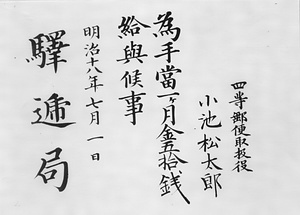 四等郵便取扱役
小池松太郎
為手當一ヶ月金五拾銭
給與候事
明治十八年七月一日
驛遞局